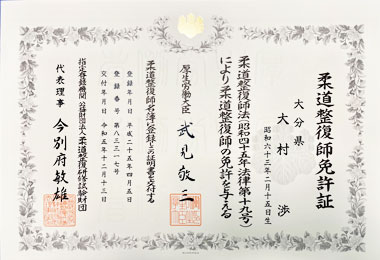 柔道整復師免許証
大分県
大村 渉
昭和六十三年二月十五日生
柔道整復師法(昭和四十五年法律第十九号)
により柔道整復師の免許を与える
厚生労働大臣 武見敬三
柔道整復師名簿に登録しこの証明書を交付する
登録年月日 平成二十五年四月五日
登録番号 第八三三一七号
交付年月日 令和五年十二月十三日
指定登録機関 公益財団法人 柔道整復研修試験財団
代表理事 今別府敏雄